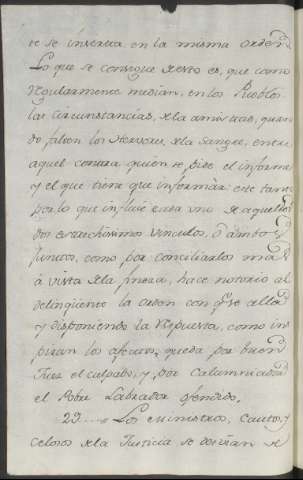 te se inserta en la misma orden.
Lo que se consigue de esto es, que como
regularmente median, en los Pueblos
las circunstancias, de la amistad, quan
do falten los de la sangre, entre
aquel contra quien se pide el informe
y el que tiene que informar: este tanto
por lo que influie cada uno de aquellos
dos estrechisimos vinculos, ó ambos
juntos, como por conciliarlos mas
á vista de la fineza, hace notorio al
delinquente la orden con qe. se alla
y disponiendo la Repuesta, como ins
piran los afectos, queda por buen
Juez el culpado, y por calumniador
el Pobre Labrador ofendido.
29.... Los Ministros, Cautos, y
Celosos de la Justicia se desvian de